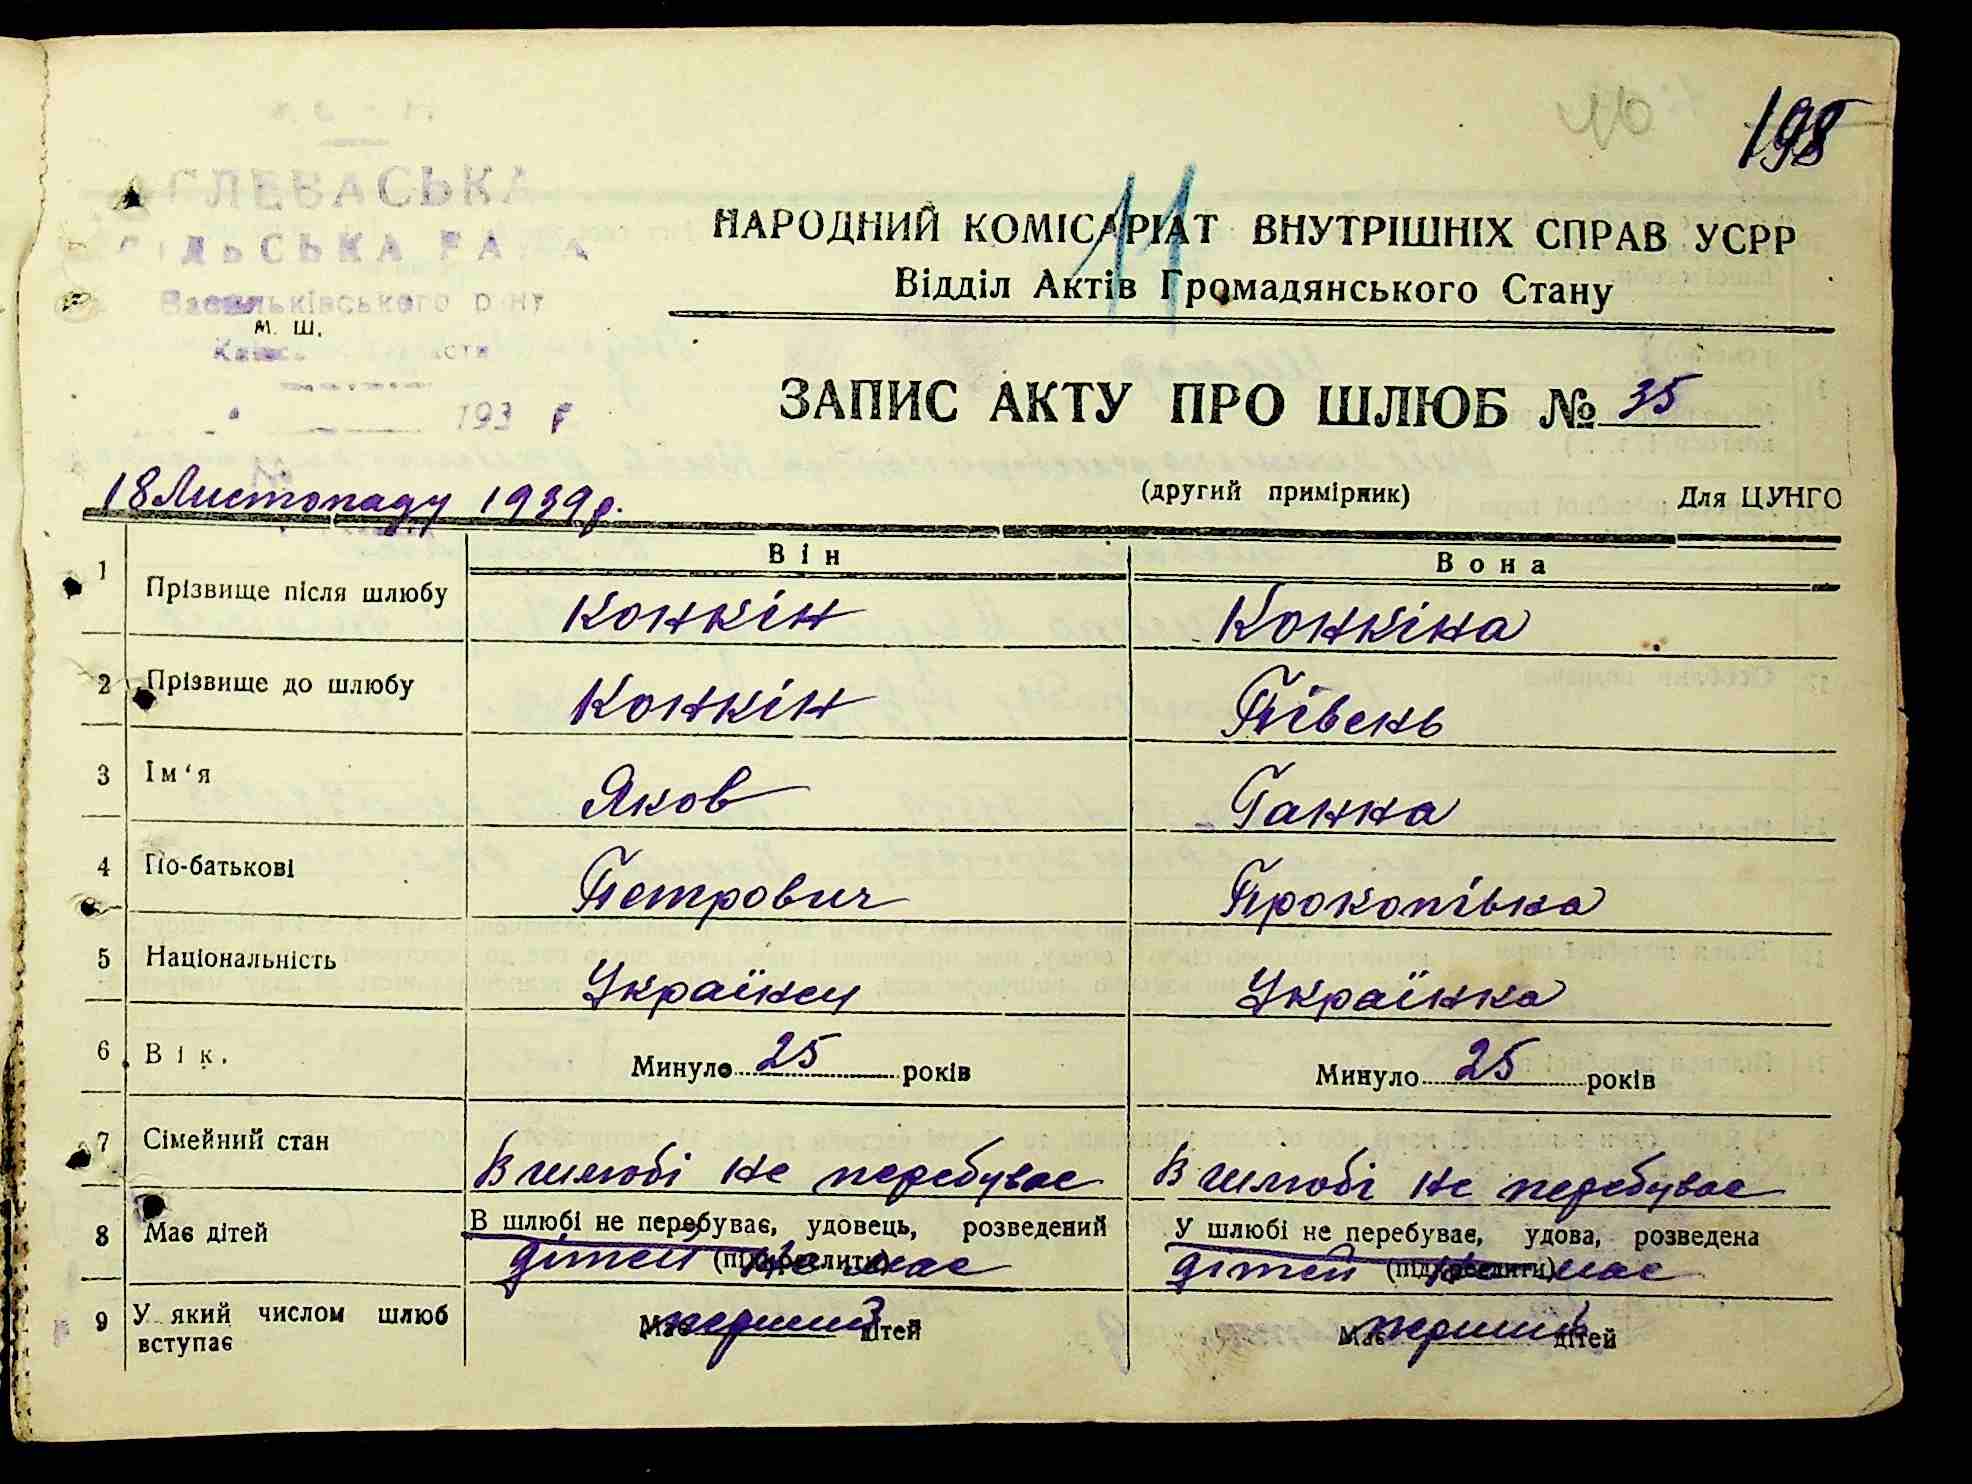 198
11
НАРОДНИЙ КОМІСАРІАТ ВНУТРІШНІХ СПРАВ УСРР
Відділ Актів Громадянського Стану
СІЛЬСЬКА РАДА
Васильківського р-ну
м. ш.
193 р
ЗАПИС АКТУ ПРО ШЛЮБ № 35
(другий примірник) Для ЦУНГО
18 Листопаду 1939 р.
Він Вона
1 Прізвище після шлюбу Конкін Конкіна
2 Прізвище до шлюбу Конкін Півень
3 Ім'я Яков Ганна
4 По-батькові Петрович Прокопівна
5 Національність Українец Українка
6 Вік. Минуло 25 років Минуло 25 років
7 Сімейний стан В шлюбі не перебуває В шлюбі не перебуває
В шлюбі не перебуває, удовець, розведений У шлюбі не перебуває, удова, розведена
(підкреслити) (підкреслити)
8 Має дітей дітей не має дітей не має
9 У який числом шлюб вступає перший перший
Має дітей Має дітей